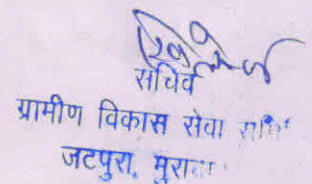 सचिव
ग्रामीण विकास सेवा
जटपुरा,